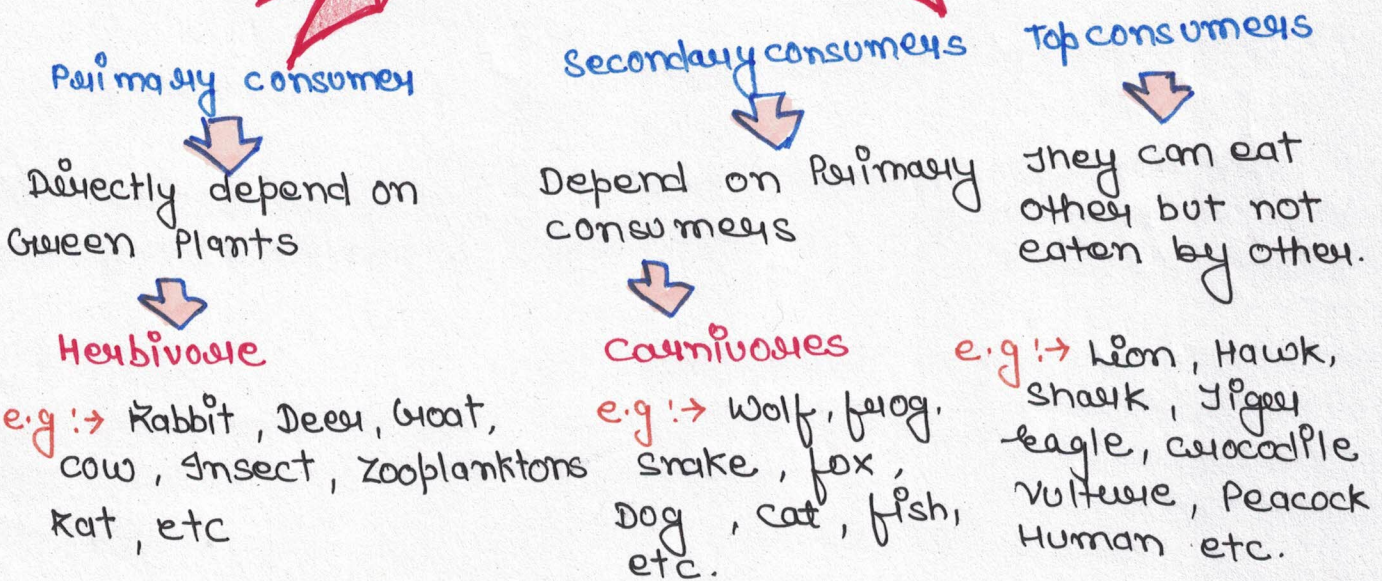 Primary consumer
Directly depend on
Green Plants
Herbivore
e.g :→ Rabbit, Deer, Goat,
cow, Insect, zooplanktons
Rat, etc
Secondary consumers
Depend on Primary
consumers
Carnivores
e.g :→ Wolf, frog,
snake, fox,
Dog, cat, fish,
etc.
Top consumers
They can eat
other but not
eaten by other.
e.g :→ Lion, Hawk,
Shark, Tiger
eagle, crocodile
Vulture, Peacock
Human etc.